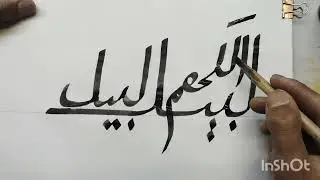 لبيك اللهم لبيك
InShOt